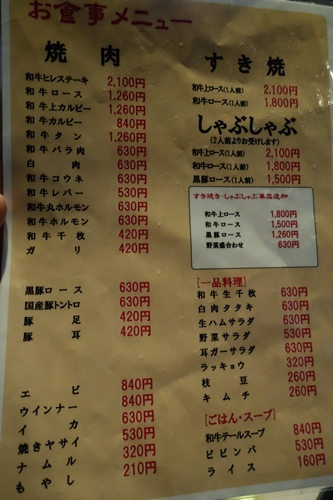 お食事メニュー
焼肉
和牛ヒレステーキ 2,100円
和牛ロース 1,260円
和牛上カルビー 1,260円
和牛カルビー 840円
和牛タン 1,260円
和牛バラ肉 630円
白肉 630円
和牛コウネ 630円
和牛レバー 530円
和牛丸ホルモン 630円
和牛ホルモン 630円
和牛千枚 420円
ガリ 420円
黒豚ロース 630円
国産豚トントロ 630円
豚足 420円
豚耳 420円
エビ 840円
ウインナー 840円
イカ 630円
焼きヤサイ 530円
ナムル 320円
もやし 210円
すき焼
和牛上ロース(1人前) 2,100円
和牛ロース(1人前) 1,800円
しゃぶしゃぶ
(2人前よりお受けします)
和牛上ロース(1人前) 2,100円
和牛ロース(1人前) 1,800円
黒豚ロース(1人前) 1,500円
すき焼き・しゃぶしゃぶ単品追加
和牛上ロース 1,800円
和牛ロース 1,500円
黒豚ロース 1,260円
野菜盛合わせ 630円
[一品料理]
和牛生千枚 630円
白肉タタキ 630円
生ハムサラダ 630円
野菜サラダ 530円
耳ガーサラダ 630円
ラッキョウ 320円
枝豆 260円
キムチ 260円
[ごはん・スープ]
和牛テールスープ 840円
ビビンバ 530円
ライス 160円